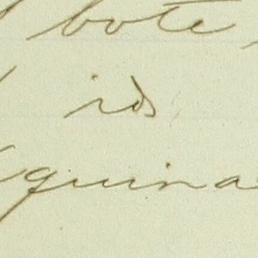 bote
ids
quina